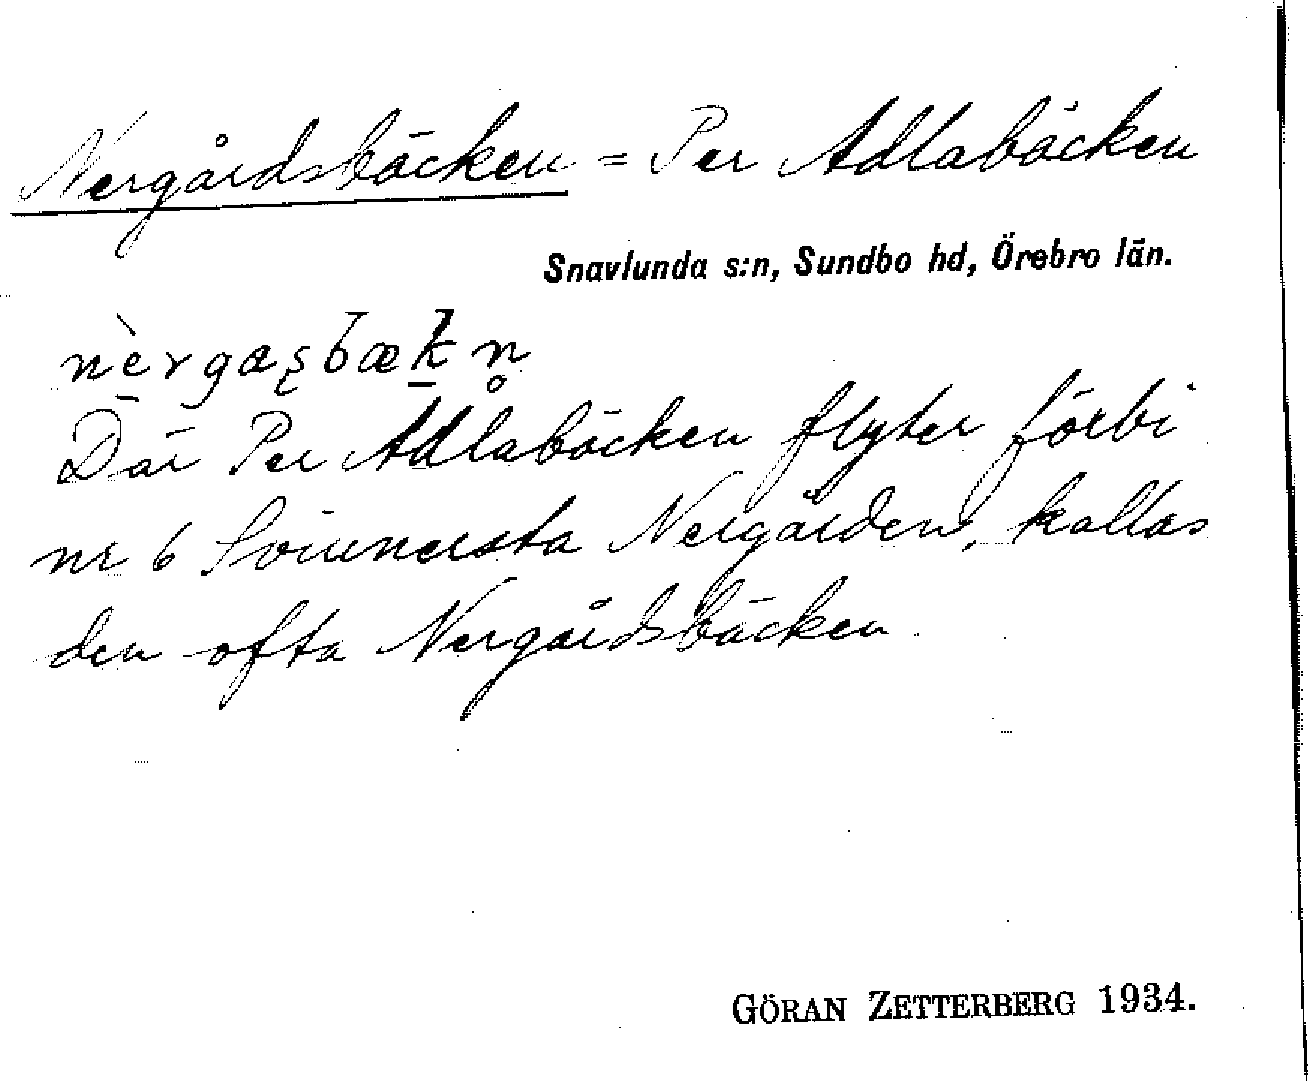 Nergårdsbäcken = Per Adlabäcken
Snavlunda s:n, Sundbo hd, Örebro län.
nèrgaʂbæk̄n̥
Där Per Adlabäcken flyter förbi
nr 6 Nergården, kallas
den ofta Nergårdsbäcken.
GÖRAN ZETTERBERG 1934.